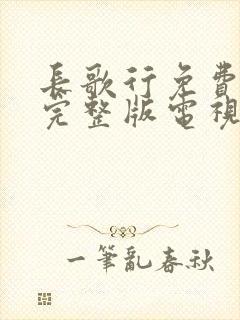 長歌行免費
完整版電視
一筆亂春秋